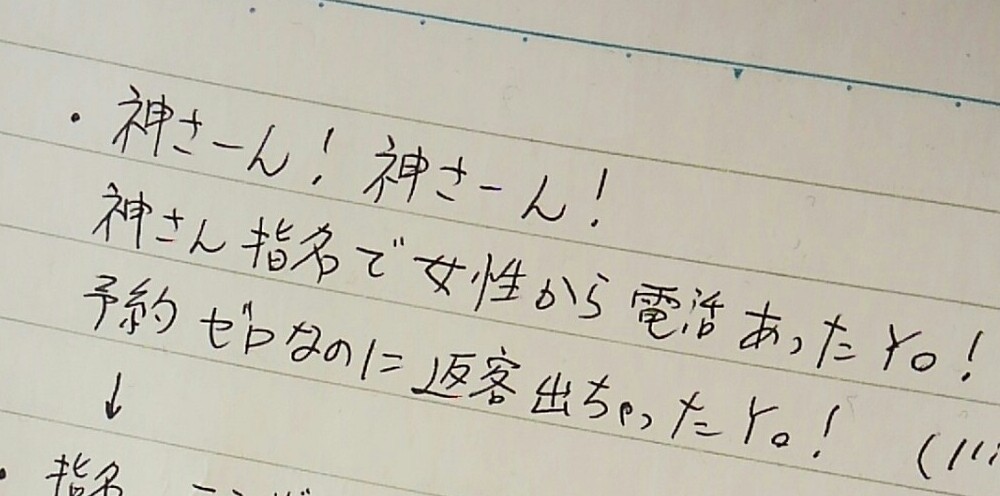 ・神さーん！神さーん！
神さん指名で女性から電話あったYo！
予約ゼロなのに返客出ちゃったYo！（
↓
・指名